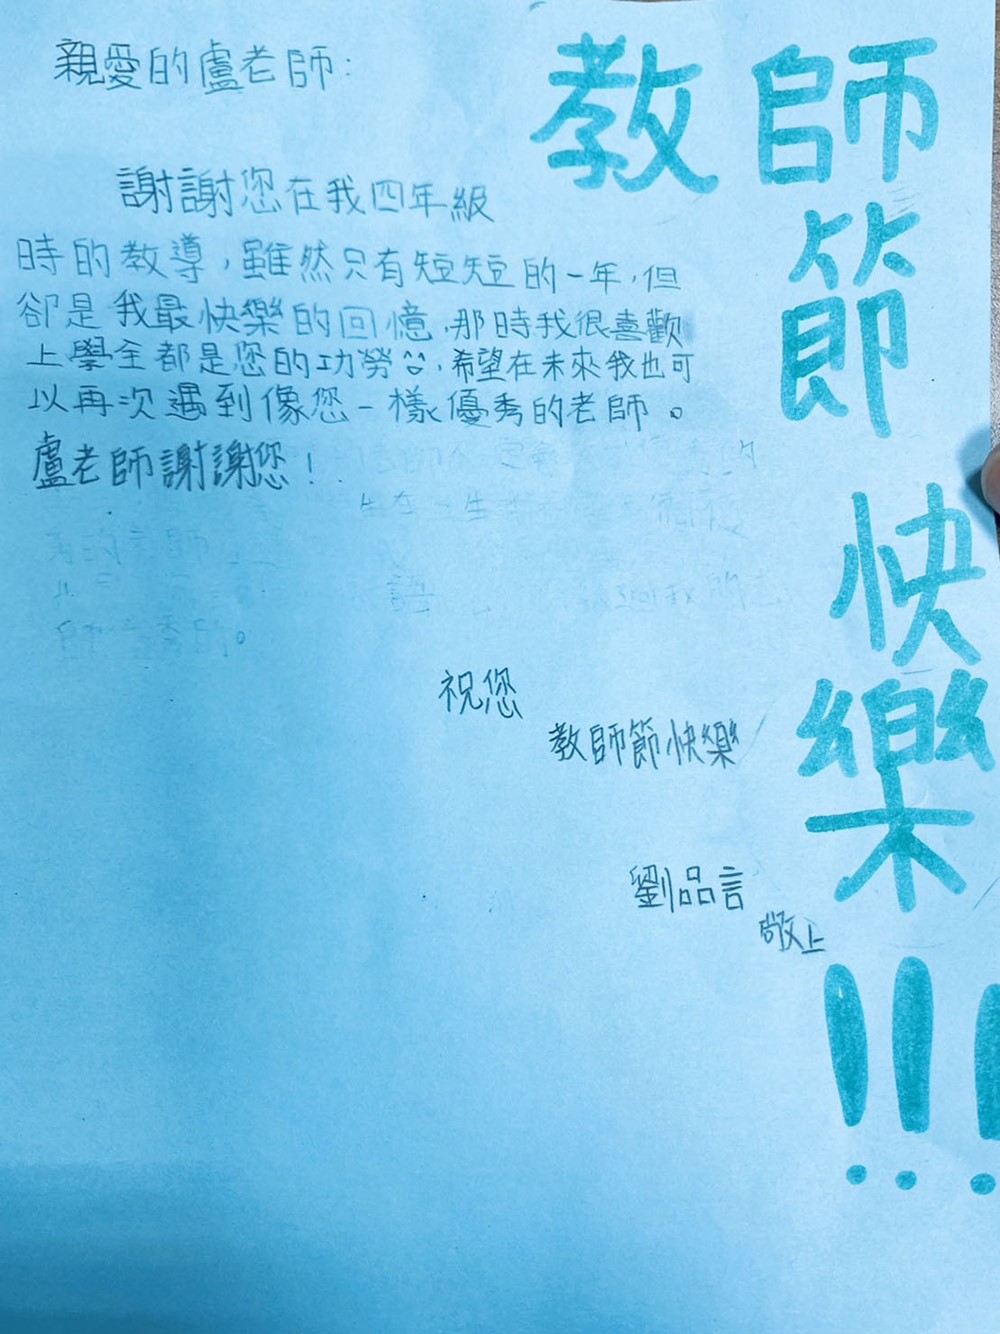 親愛的盧老師：
謝謝您在我四年級
時的教導，雖然只有短短的一年，但
卻是我最快樂的回憶，那時我很喜歡
上學全都是您的功勞，希望在未來我也可
以再次遇到像您一樣優秀的老師。
盧老師謝謝您！
祝您
教師節快樂
劉品言
敬上
教師
節
快
樂
!!!